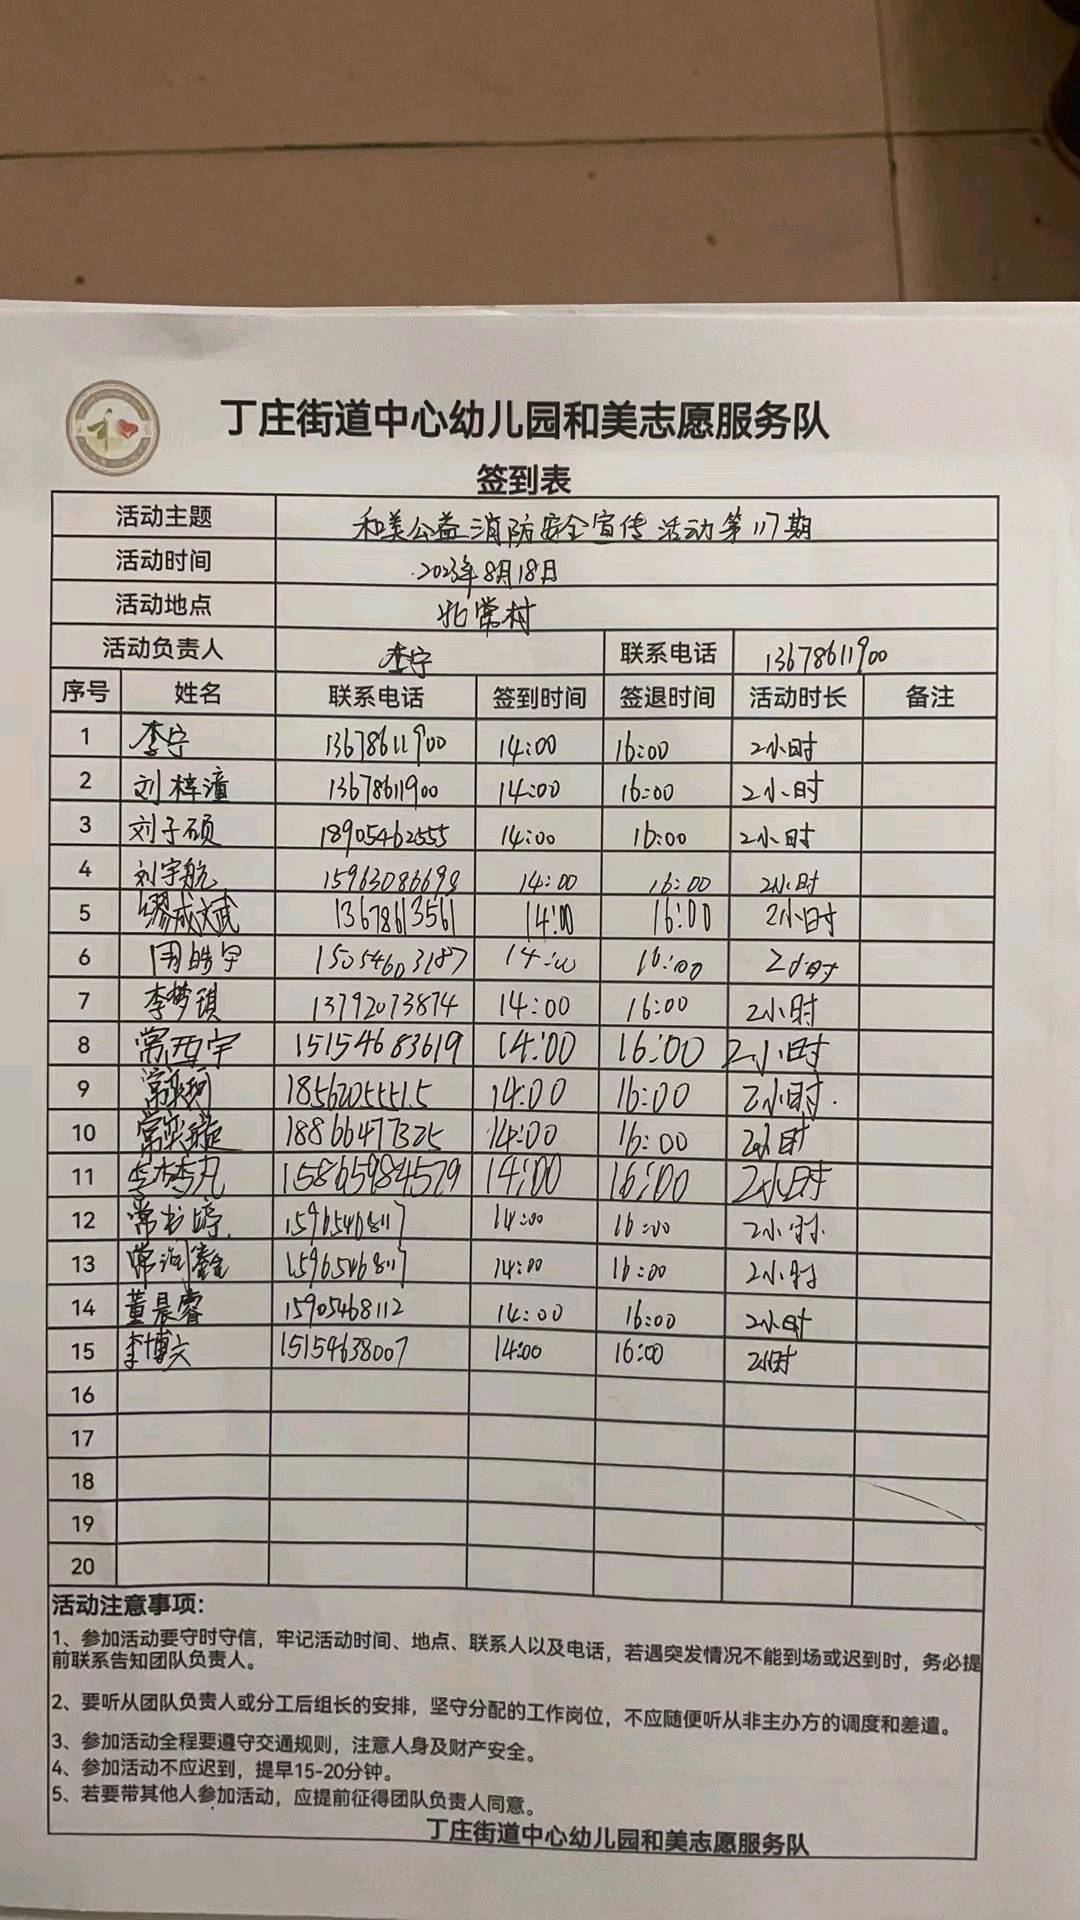 丁庄街道中心幼儿园和美志愿服务队
签到表
活动主题 和美公益消防安全宣传活动第117期
活动时间 2023年8月18日
活动地点 北常村
活动负责人 李宁 联系电话 13678611900
序号 姓名 联系电话 签到时间 签退时间 活动时长 备注
1 李宁 13678611900 14:00 16:00 2小时
2 刘梓潼 13678611900 14:00 16:00 2小时
3 刘子硕 18905462555 14:00 16:00 2小时
4 刘宇航 15963086698 14:00 16:00 2小时
5 缪成斌 13678613561 14:00 16:00 2小时
6 周皓宇 15054603187 14:00 16:00 2小时
7 李梦琪 13792073874 14:00 16:00 2小时
8 常西宇 15154683619 14:00 16:00 2小时
9 18562055515 14:00 16:00 2小时.
10 18866477325 14:00 16:00 2小时
11 15865984579 14:00 16:00 2小时
12 15965468117 14:00 16:00 2小时.
13 15965468117 14:00 16:00 2小时
14 董晨睿 15905468112 14:00 16:00 2小时
15 李博文 15154638007 14:00 16:00 2小时
16
17
18
19
20
活动注意事项:
1、参加活动要守时守信，牢记活动时间、地点、联系人以及电话，若遇突发情况不能到场或迟到时，务必提
前联系告知团队负责人。
2、要听从团队负责人或分工后组长的安排，坚守分配的工作岗位，不应随便听从非主办方的调度和差遣。
3、参加活动全程要遵守交通规则，注意人身及财产安全。
4、参加活动不应迟到，提早15-20分钟。
5、若要带其他人参加活动，应提前征得团队负责人同意。
丁庄街道中心幼儿园和美志愿服务队